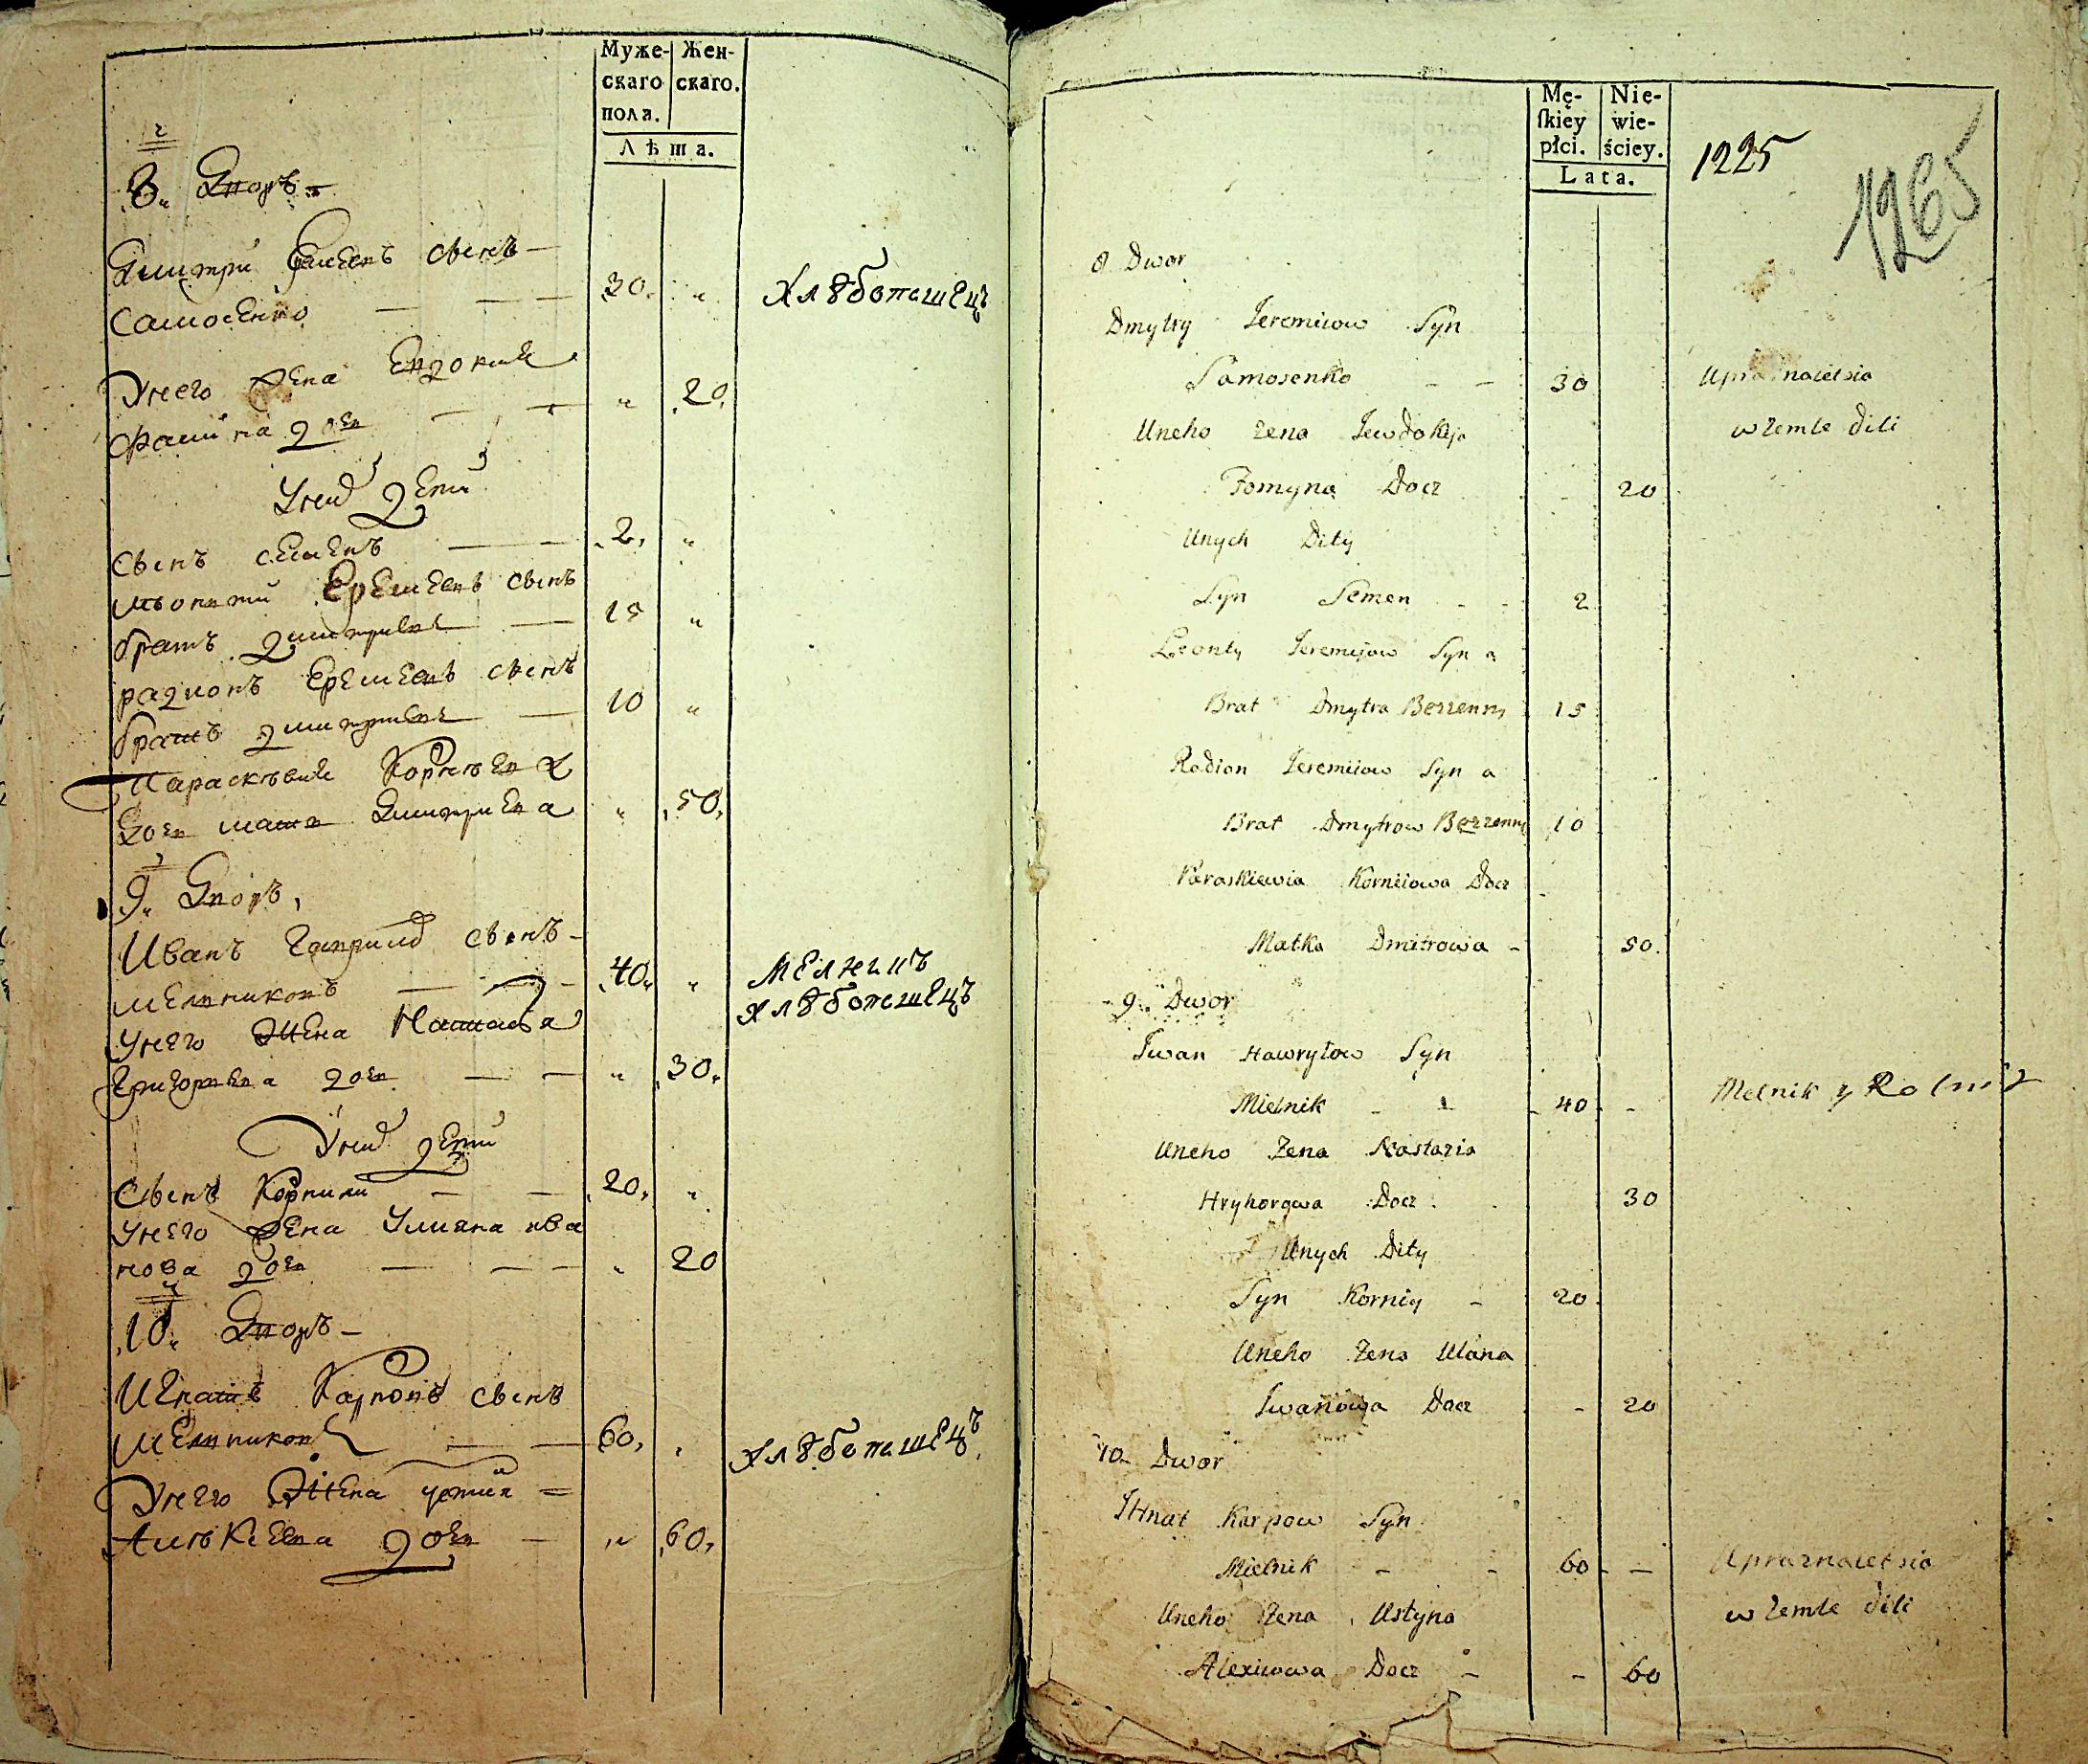 Муже-
скаго
пола.
Жен-
скаго.
Лѣта.
8. Дворъ
Дмитри Еремѣевъ сынъ
Самосенко 30. „ Хлѣбопашецъ
Унего жена Евдокия
Фомина дочь „ 20.
Уних дети
Сынъ Семенъ 2. „
Леонти Еремѣевъ сынъ
братъ дмитриевъ 15 „
радионъ Еремѣевъ сынъ
братъ дмитриевъ 10 „
Параскѣвия Корнѣева
дочь мать Дмитриева „ 50.
9. Дворъ,
Иванъ Гаврилов сынъ
Мельниковъ 40. „ Мелникъ
хлѣбопашецъ
Унего жена Наталья
Григорьева дочь „ 30.
Уних дети
Сынъ Корнили 20. „
Унего жена Улияна ива
нова дочь „ 20
10. Дворъ
Игнатъ Карповъ сынъ
Мельников 60. „ Хлѣбопашецъ
Унего жена устия
Алѣксеева дочь „ 60.
Mę-
ſkiey
płci.
Nie-
wie-
ściey.
Lata.
1225
1265
8 Dwor
Dmytry Jeremiiow Syn
Samosenko 30
Uneho zena Jewdokija
w zemle dili
Fomyna Docz - 20
Unych Dity
Syn Semen - - 2
Leonty Jeremijow Syn a
Brat Dmytra Bezzenny 15
Rodion Jeremiiow Syn a
Brat Dmytrow Bezzenny 10
Paraskiewia Korniiowa Docz
Matka Dmitrowa - 50.
9. Dwor
Iwan Hawryłow Syn
Mielnik - 40 - Melnik y Rolnik
Uneho Zena Nastazia
Hryhorowa Docz 30
Unych Dity
Syn Korniy - 20
Uneho Zena Ulana
Iwanowa Docz - 20
10 Dwor
IHnat Karpow Syn
Mielnik - - 60 - Upraznaietsia
Uneho Zena Ustyna w zemle dili
Alexiiowa Docz - - 60